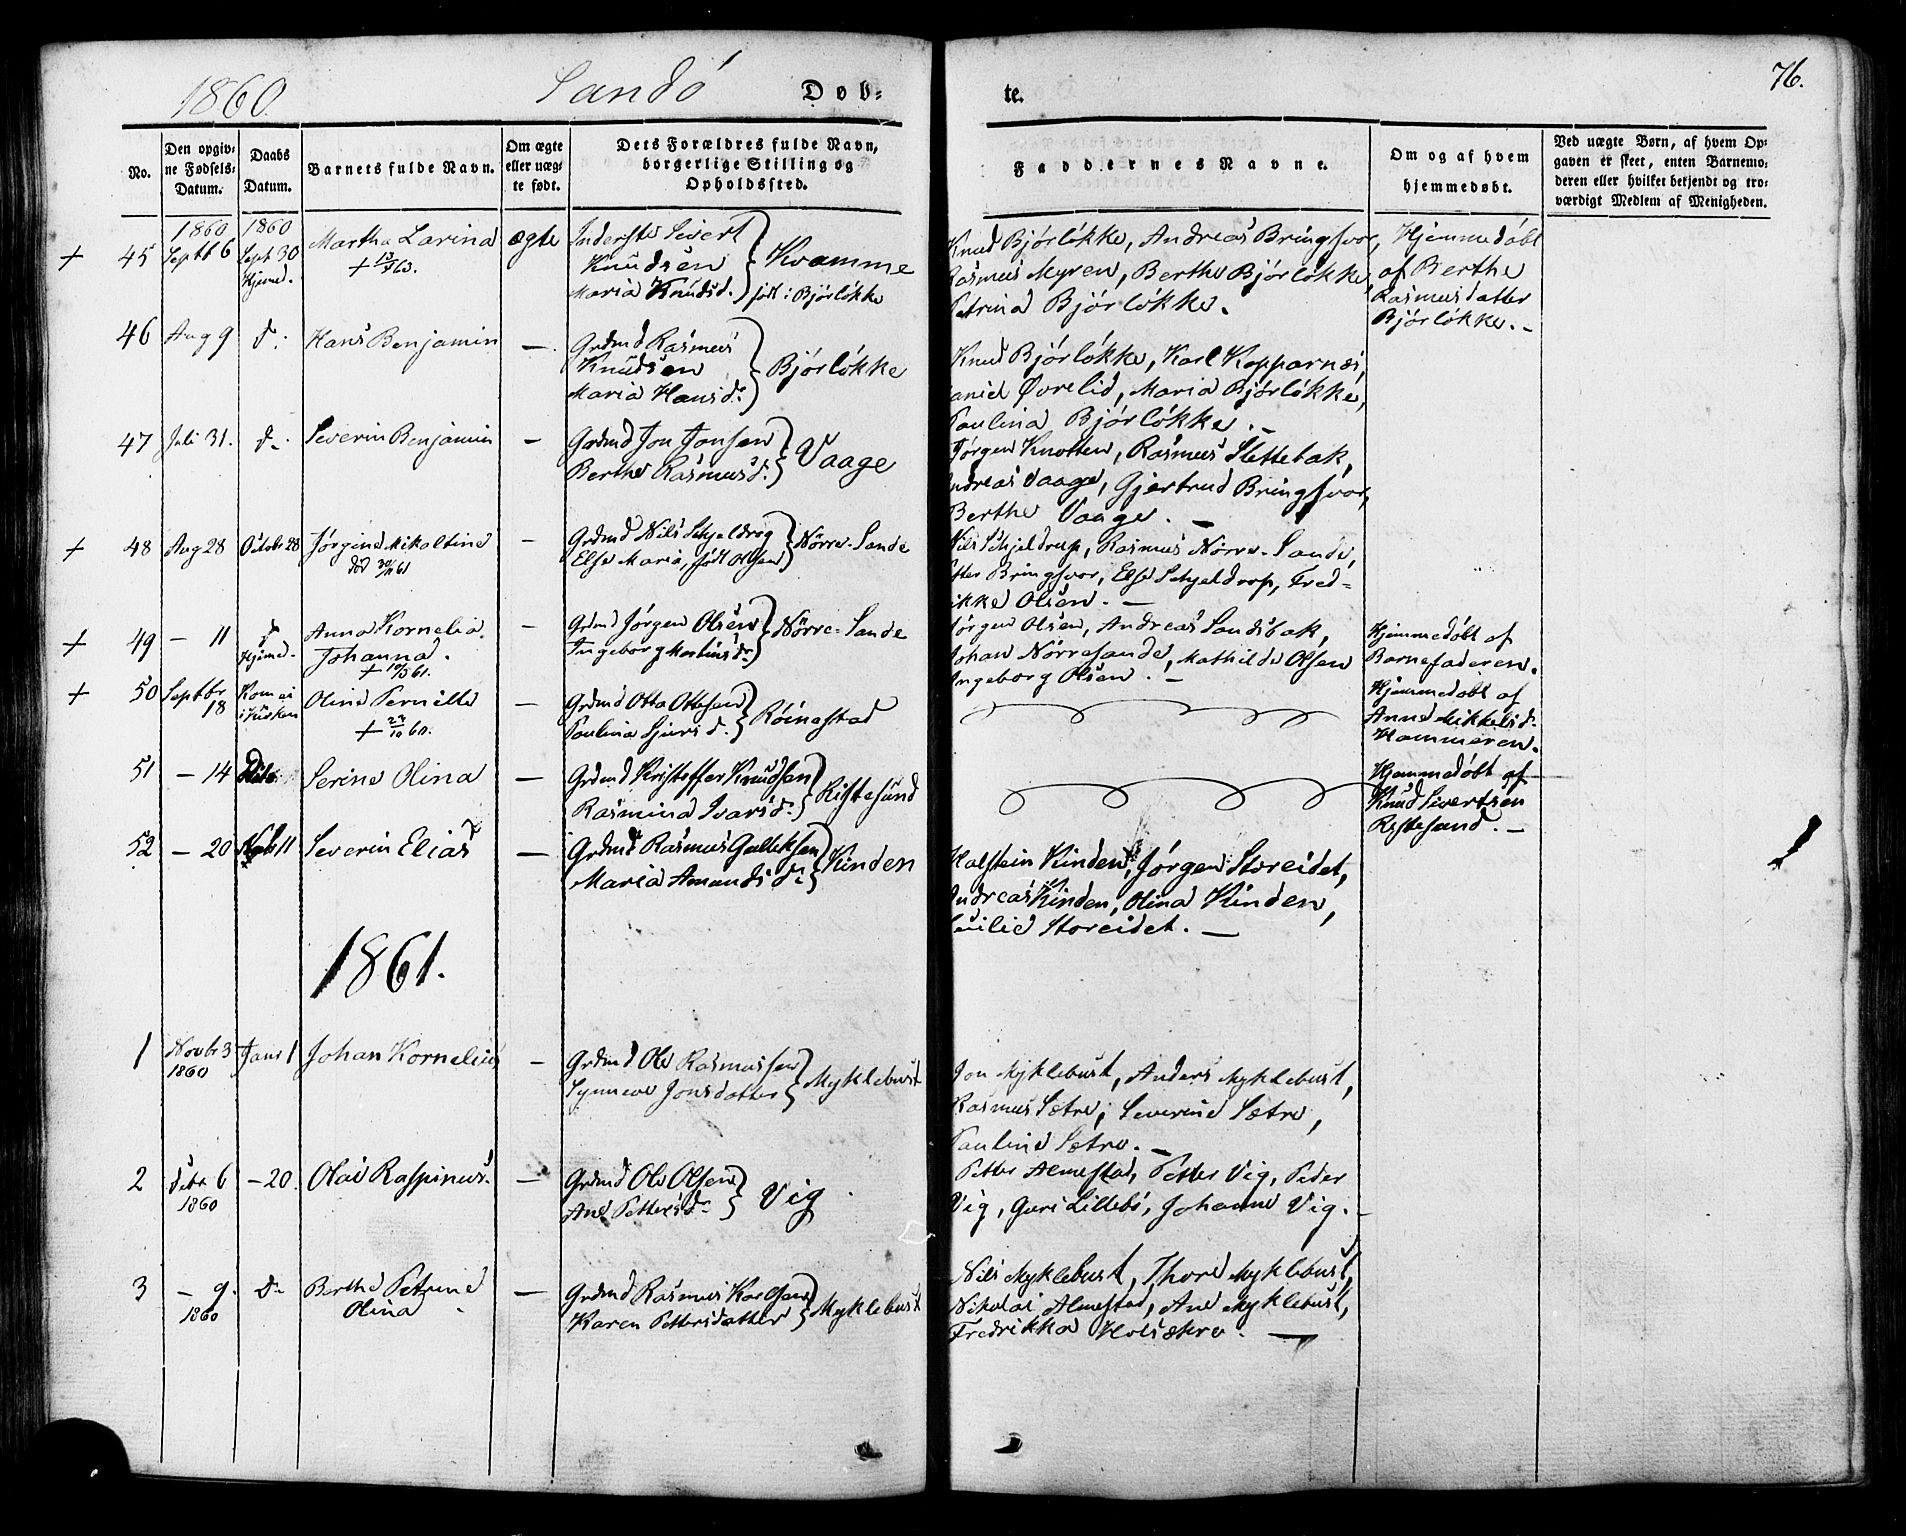 1860.
Sandö
Døb-
te.
76.
No.
Den opgiv-
ne Fødsels-
Datum.
Daabs
Datum.
Barnets fulde Navn.
Om ægte
eller uæg-
te født.
Dets Forældres fulde Navn,
borgerlige Stilling og
Opholdssted.
Faddernes Navne.
Om og af hvem
hjemmedøbt.
Ved uægte Børn, af hvem Op-
gaven er skeet, enten Barnemo-
deren eller hvilket bekjendt og tro-
værdigt Medlem af Menigheden.
+ 45
1860
Septb 6
1860
Sept 30
Hjemd.
Martha Larina
ægte
Inderste Sivert
Knudsen
Maria Knudsd. födt: Bjórlókke
Kvamme
Knud Bjórlókke, Andreas Bringsvor,
Rasmus Myren, Berthe Bjórlókke,
Petrina Bjórlókke.
Hjemmedóbt
af Berthe
Rasmusdatter
Bjórlókke. -
46
Aug 9
do.
Hans Benjamin
-
Grdmd Rasmus
Knudsen
Maria Hansdr.
Bjórlókke
Knud Bjórlókke, Karl Kopparnæs,
Øvrelid, Maria Bjórlókke,
Paulina Bjórlókke. -
47
Juli 31.
do.
Severin Benjamin
-
Grdmd Jon Jonsen
Berthe Rasmusd.
Vaage
Jørgen Knotten, Rasmus Slettebak,
Andreas Vaage, Gjertrud Bringsvor,
Berthe Vaage. -
+ 48
Aug 28
Octobr 28
Jørgine Mikaltine
död 30/11 61
-
Grdmd Nils Schjeldrop
Else Maria, födt Olsen
Nörre-Sande
Nils Schjeldrup, Rasmus Nörre-Sande,
Petter Bringsvor, Else Schjeldrop, Fred-
rikke Olsen. -
+ 49
- 11
do
Hjemd.
Anna Kornelia
Johanna.
-
Grdmd Jørgen Olsen
Ingeborg Martinsdr.
Nörre-Sande
Jørgen Olsen, Andreas Sandsbak,
Johan Nörresande, Mathilde Olsen
Ingeborg Olsen. -
Hjemmedöbt af
Barnefaderen.
+ 50
Septbr
18
Kom ei
i Kirken
Oline Pernille
+ 24/10 60.
Grdmd Otto Ottesen
Paulina Sjursd.
Röinestad
Hjemmedöbt af
Anne Mikkelsd.
Hammeren.
51
- 14
Serine Olina
-
Grdmd Kristoffer Knudsen
Rasmina Ivarsd.
Ristesund
Hjemmedöbt af
Knud Sivertsen
Ristesund. -
52
- 20
11
Severin Elias
-
Grdmd Rasmus Gulleksen
Maria Amundsdr.
Kinden
Halstein Kinden, Jørgen Storeidet,
Andreas Kinden, Olina Kinden,
Storeidet. -
1861.
1
Novbr 3
1860
Janr 1
Johan Kornelius
-
Grdmd Ole Rasmussen
Synneve Jonsdatter
Myklebust
Jon Myklebust, Anders Myklebust,
Rasmus Sætre, Severine Sætre,
Pauline Sætre. -
2
Debr 6
1860
- 20.
Olai Raspinus.
-
Grdmd Ole Olsen
Ane Pettersdr.
Vig.
Petter Almestad, Petter Vig, Peder
Vig, Guri Lillebö, Johanne Vig. -
3
- 9.
1860
Do
Berthe Petrine
Olina
-
Grdmd Rasmus Karlsen
Karen Pettersdatter
Myklebust
Nils Myklebust, Thore Myklebust,
Nikolai Almestad, Ane Myklebust,
Fredrikka Holsækre. -